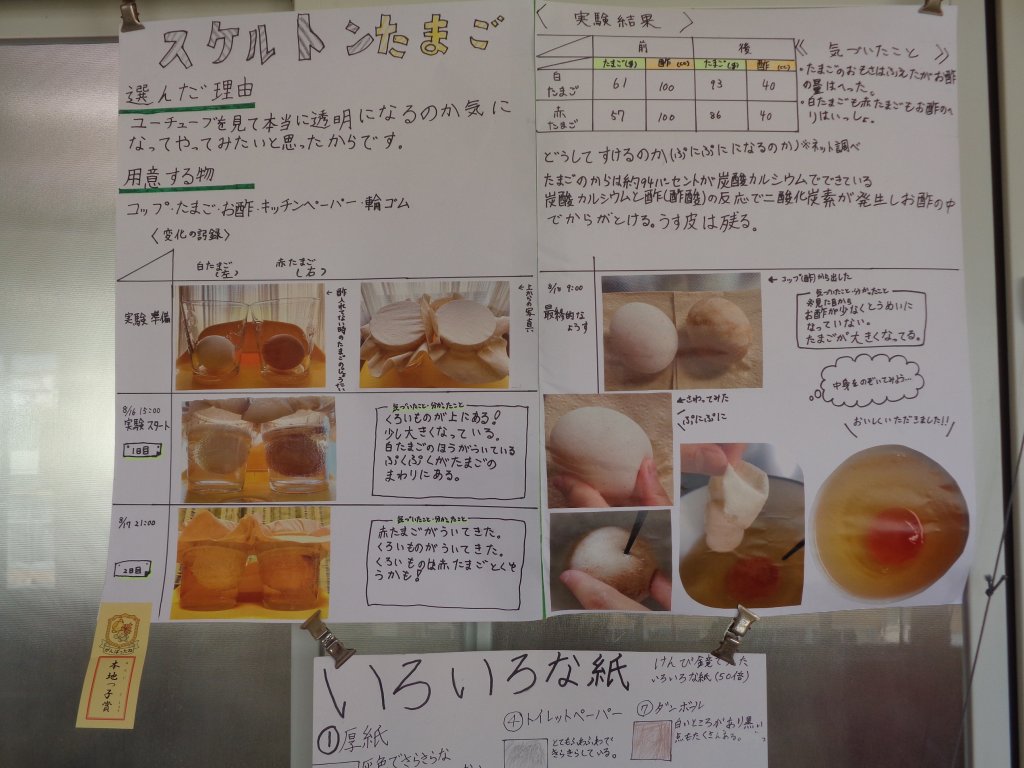 スケルトンたまご
選んだ理由
ユーチューブを見て本当に透明になるのか気に
なってやってみたいと思ったからです。
用意する物
コップ・たまご・お酢・キッチンペーパー・輪ゴム
〈変化の記録〉
白たまご(左)
赤たまご(右)
実験準備
←酢入れてない時のたまごのじょうたい
←上からの写真
8/6 15:00
実験スタート
1日目
気づいたこと・分かったこと
くろいものが上にある!
少し大きくなっている。
白たまごのほうがういている
ぶくぶくがたまごの
まわりにある。
8/7 21:00
2日目
気づいたこと・分かったこと
赤たまごがういてきた。
くろいものがういてきた。
くろいものは赤たまごとくゆうかも!
〈実験結果〉
前
後
たまご(g)
酢(cc)
たまご(g)
酢(cc)
白たまご
61
100
93
40
赤たまご
57
100
86
40
《気づいたこと》
・たまごのおもさはふえたがお酢
の量はへった。
・白たまごも赤たまごもお酢のへ
りはいっしょ。
どうしてすけるのか(ぷにぷにになるのか)※ネット調べ
たまごのからは約94パーセントが炭酸カルシウムでできている
炭酸カルシウムと酢(酢酸)の反応で二酸化炭素が発生しお酢の中
でからがとける。うす皮は残る。
9:00
最終的な
ようす
←コップ(酢)から出した
気づいたこと・分かったこと
※見た目から
お酢が少なくとうめいに
なっていない。
たまごが大きくなってる。
中身をのぞいてみよう…
←さわってみた
ぷにぷに
\おいしくいただきました!!/
がんばったね
本地っ子賞
いろいろな紙
けんび鏡で見た
いろいろな紙(50倍)
①厚紙
灰色でさらさらな
④トイレットペーパー
とてもふわふわで
きらきらしている。
⑦ダンボール
白いところがあり黒い
点もたくさんある。